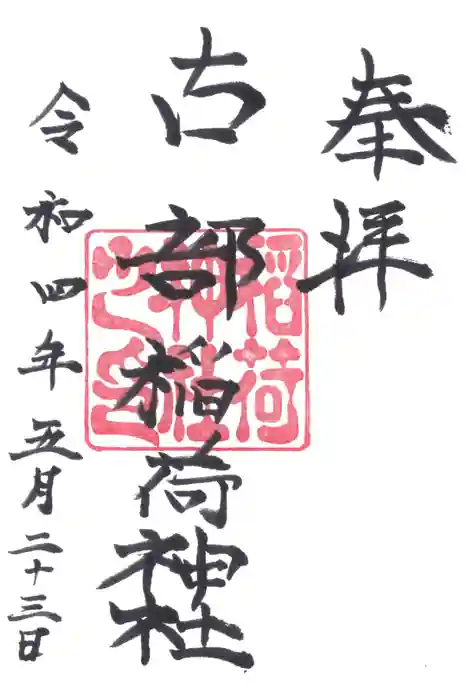 奉拝
古部稲荷神社
令和四年五月二十三日
稲荷
神社
之印